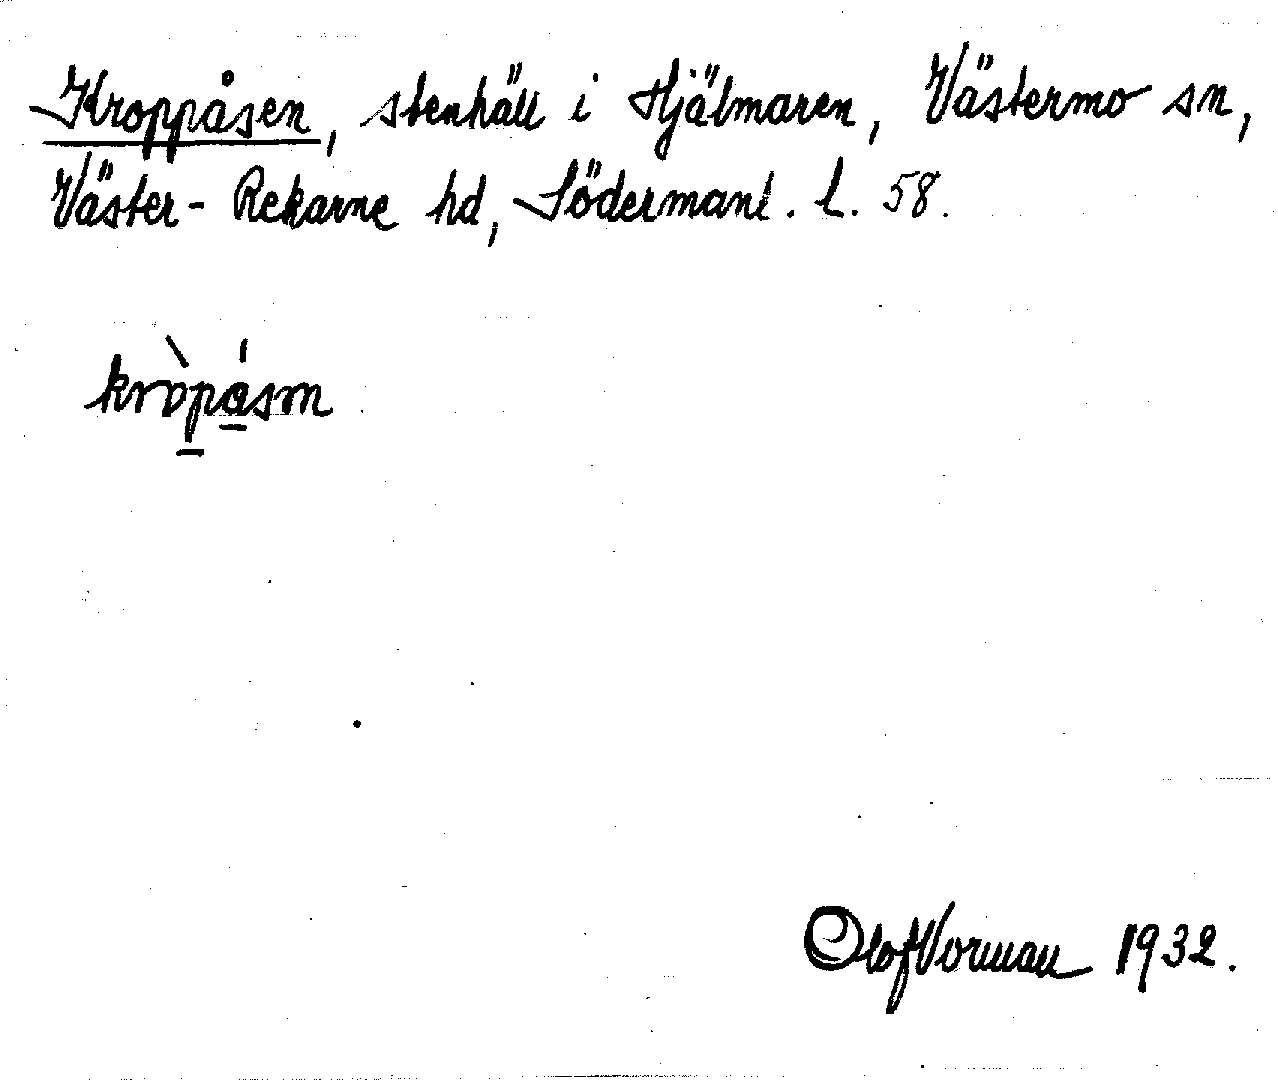 Kroppåsen, stenhäll i Hjälmaren, Västermo sn,
Väster-Rekarne hd, Södermanl. l. 58.
kròpásṇ
Olof Vorman 1932.